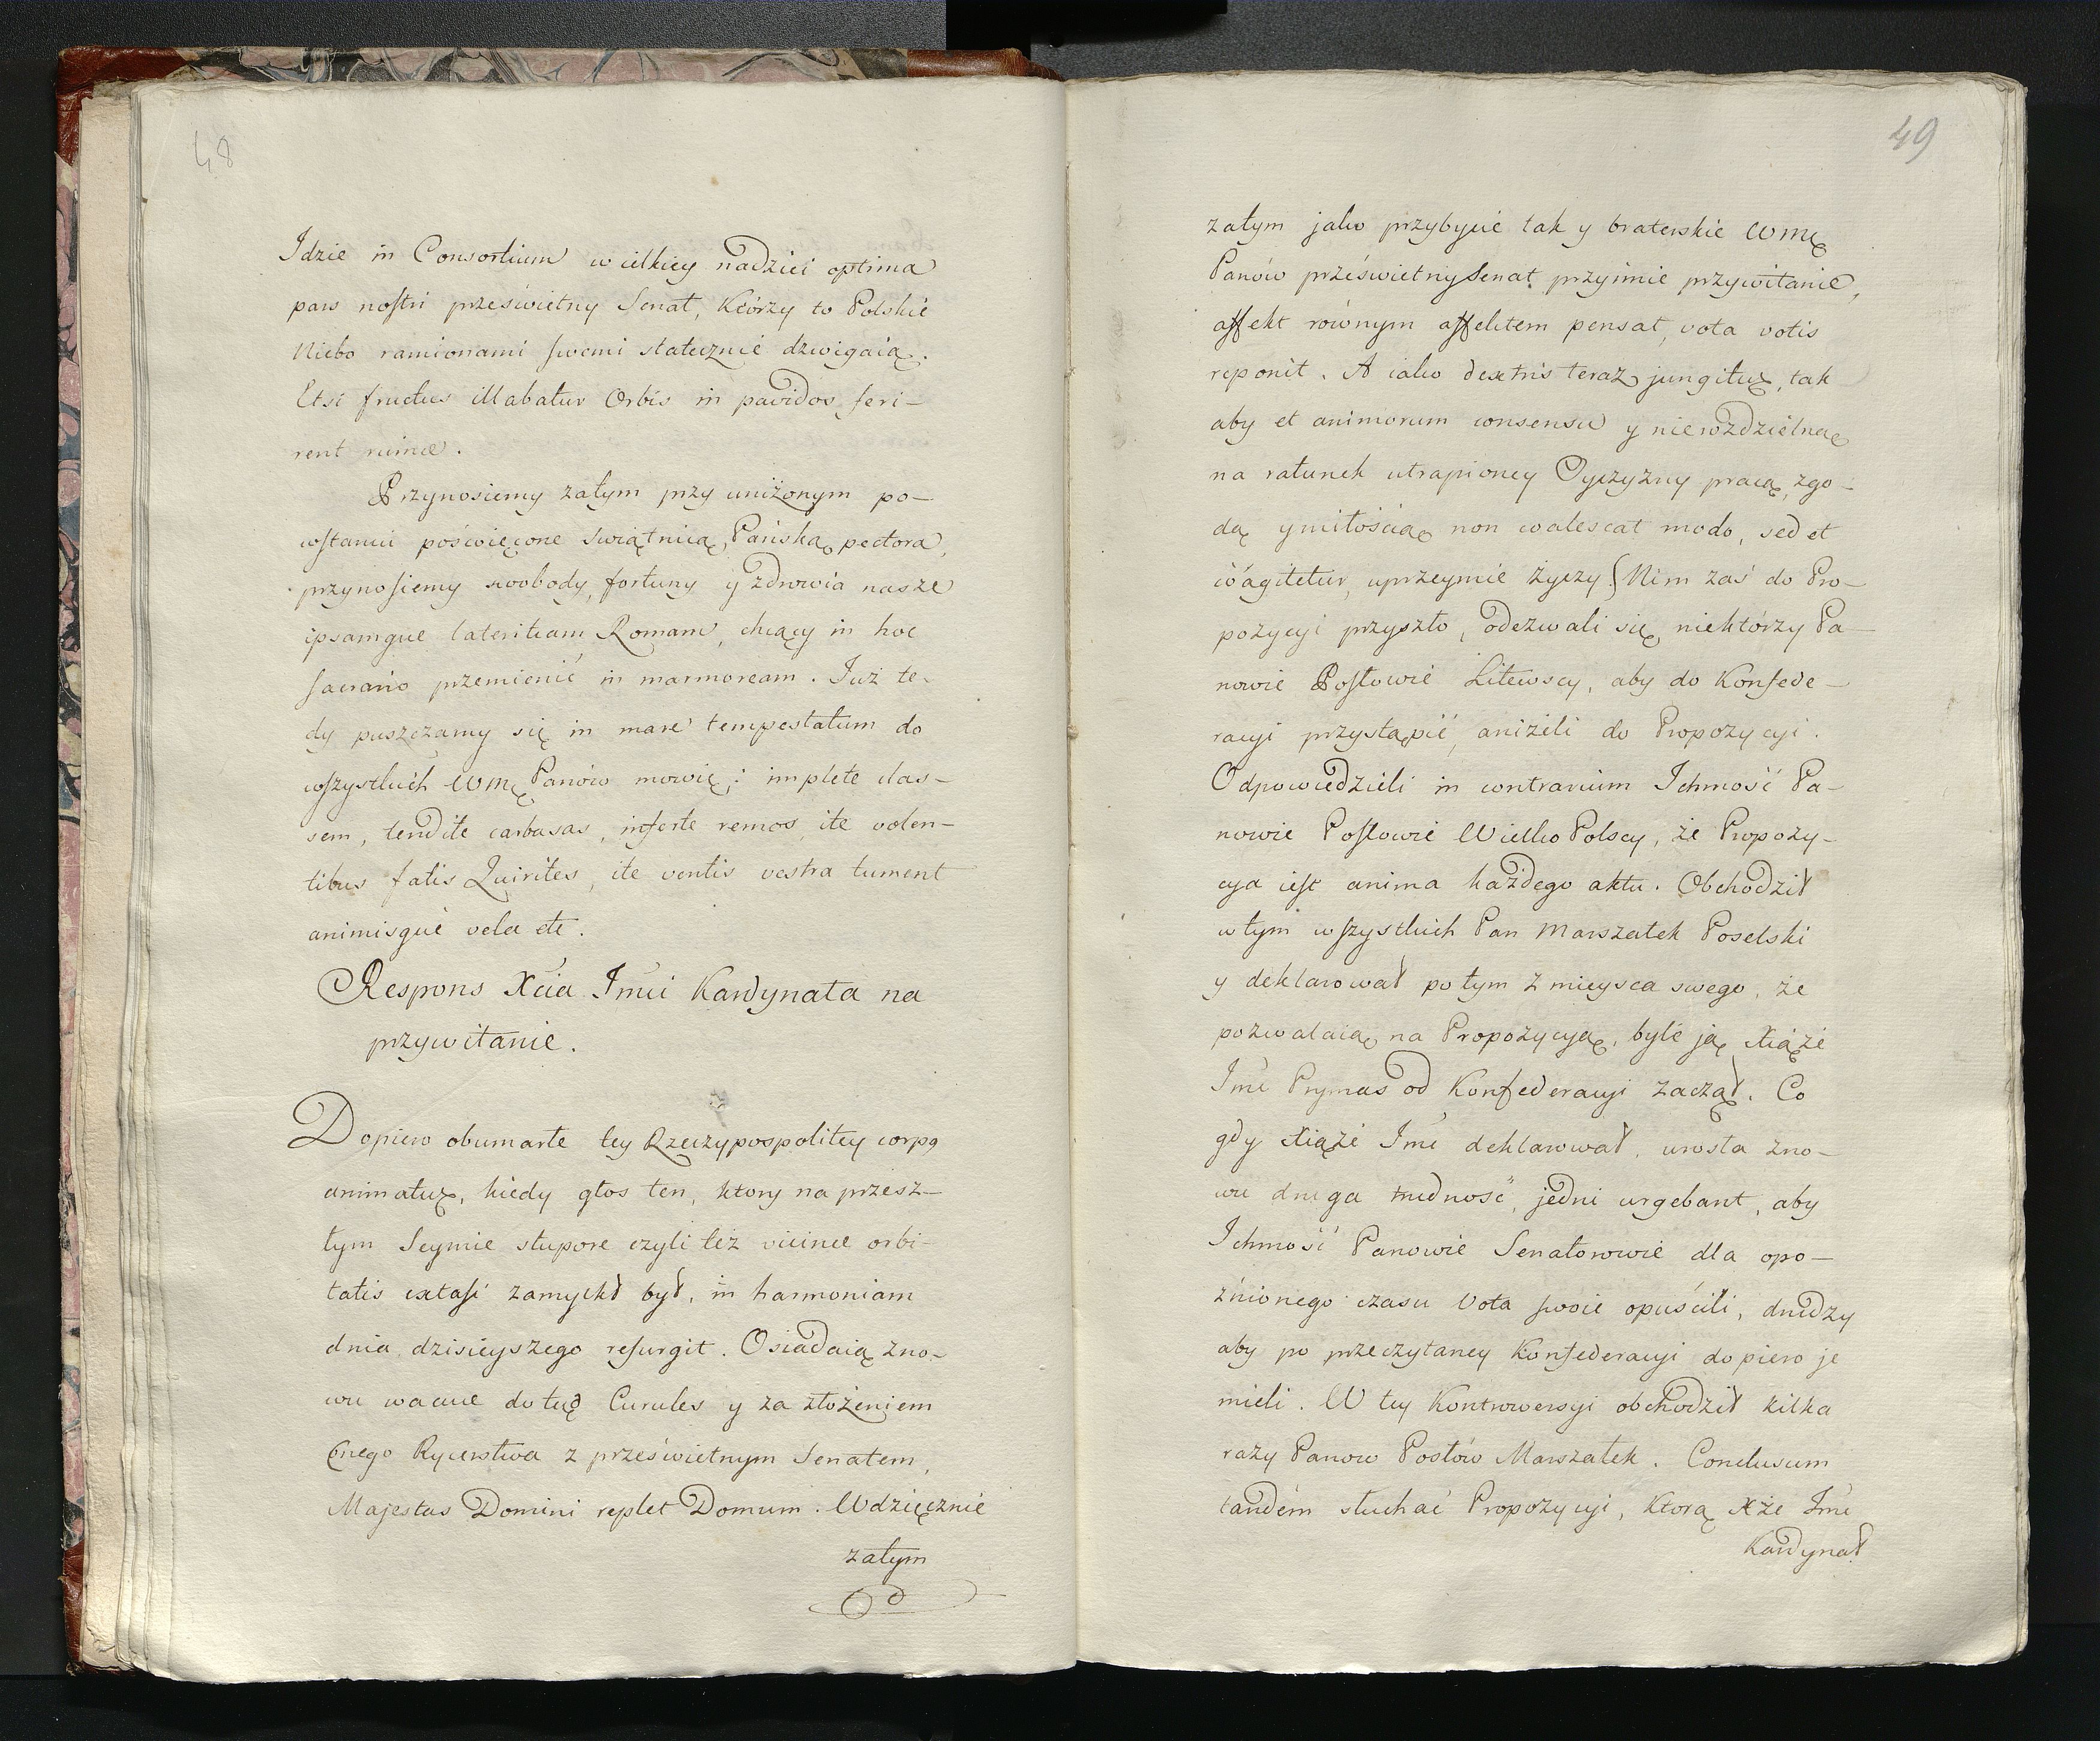 48
Idzie in Consortium wielkiey nadziei optima
pars nostri prześwietny Senat, Którzy to Polskie
Niebo ramionami swemi statecznie dzwigaią.
Etsi fructus illabatur Orbis in pavidos feri-
rent ruinæ.
Przynosiemy zatym przy uniżonym po-
wstaniu poświęcone Swiątnicą Pańską pectora,
przynosiemy swobody, fortuny y zdrowia nasze
ipsamque lateritiam Romam, chcący in hoc
sacrario przemienić in marmoream. Już te-
dy puszczamy się in mare tempestatum do
wszystkich WMę Panów mowię; implete clas-
sem, tendite carbasas, inferte remos, ite volen-
tibus fatis Quirites, ite ventis vestra tument
animisque vela etc.
Respons Xcia Jmci Kardynała na
przywitanie.
Dopiero obumarłe tey Rzeczypospolitey corpq
animatur, kiedy głos ten, ktory na przesz-
łym Seymie stupore czyli też vicinæ orbi-
tatis extasi zamyckł był, in harmoniam
dnia dzisieyszego resurgit. Osiadaią zno-
wu vacuæ dotąd Curules y za złożeniem
Cnego Rycerstwa z prześwietnym Senatem,
Majestas Domini replet Domum. Wdzięcznie
zatym
49
zatym jako przybycie tak y braterskie WMę
Panów prześwietny Senat przyimie przywitanie,
affekt równym affektem pensat, vota votis
reponit. A iako dextris teraz jungitur, tak
aby et animorum consensu y nierozdzielną
na ratunek utrapioney Oyczyzny pracą, zgo-
dą y miłością non coalescat modo, sed et
coagitetur, uprzeymie życzy. Nim zaś do Pro-
pozycyi przyszło, odezwali się niektórzy Pa-
nowie Posłowie Litewscy, aby do Konfede-
racyi przystąpić, aniżeli do Propozycyi.
Odpowiedzieli in contrarium Ichmość Pa-
nowie Posłowie Wielko Polscy, że Propozy-
cya iest anima każdego aktu. Obchodził
w tym wszystkich Pan Marszałek Poselski
y deklarował potym z mieysca swego, że
pozwalaią na Propozycyą, byle ją Xiąże
Jmć Prymas od Konfederacyi zaczął. Co
gdy Xiąże Jmć deklarował, urosła zno-
wu druga trudność, jedni urgebant, aby
Ichmość Panowie Senatorowie dla opo-
źnionego czasu Vota swoie opuścili, drudzy
aby po przeczytaney Konfederacyi dopiero je
mieli. W tey Kontrowersyi obchodził kilka
razy Panow Posłów Marszałek. Conclusum
tandem słuchać Propozycyi, Ktorą Xże Jmć
Kardynał